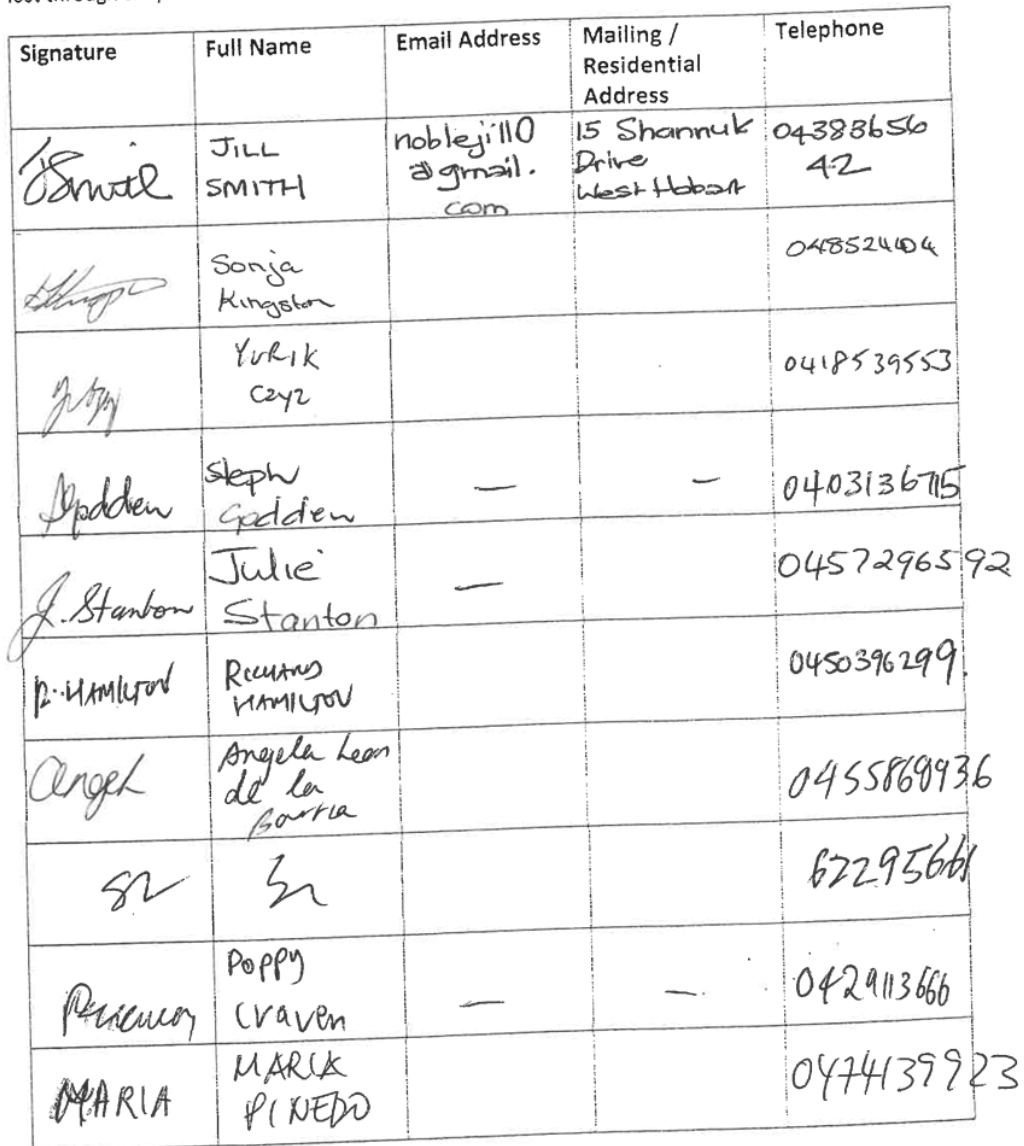 Signature Full Name Email Address Mailing / Residential Address Telephone
JSmith JILL SMITH noblejill0@gmail.com 15 Shannuk Drive West Hobart 0438365642
Sonja Kingston
YURIK CZYZ 0418539553
SGodden Steph Godden — — 0403136715
J. Stanton Julie Stanton — 0457296592
R. HAMILTON RICHARD HAMILTON 0450396299
Angel Angela Leon de la Barra
62295661
Poppy Craven — — 0429113666
MARIA MARIA PINEDO 0474139923